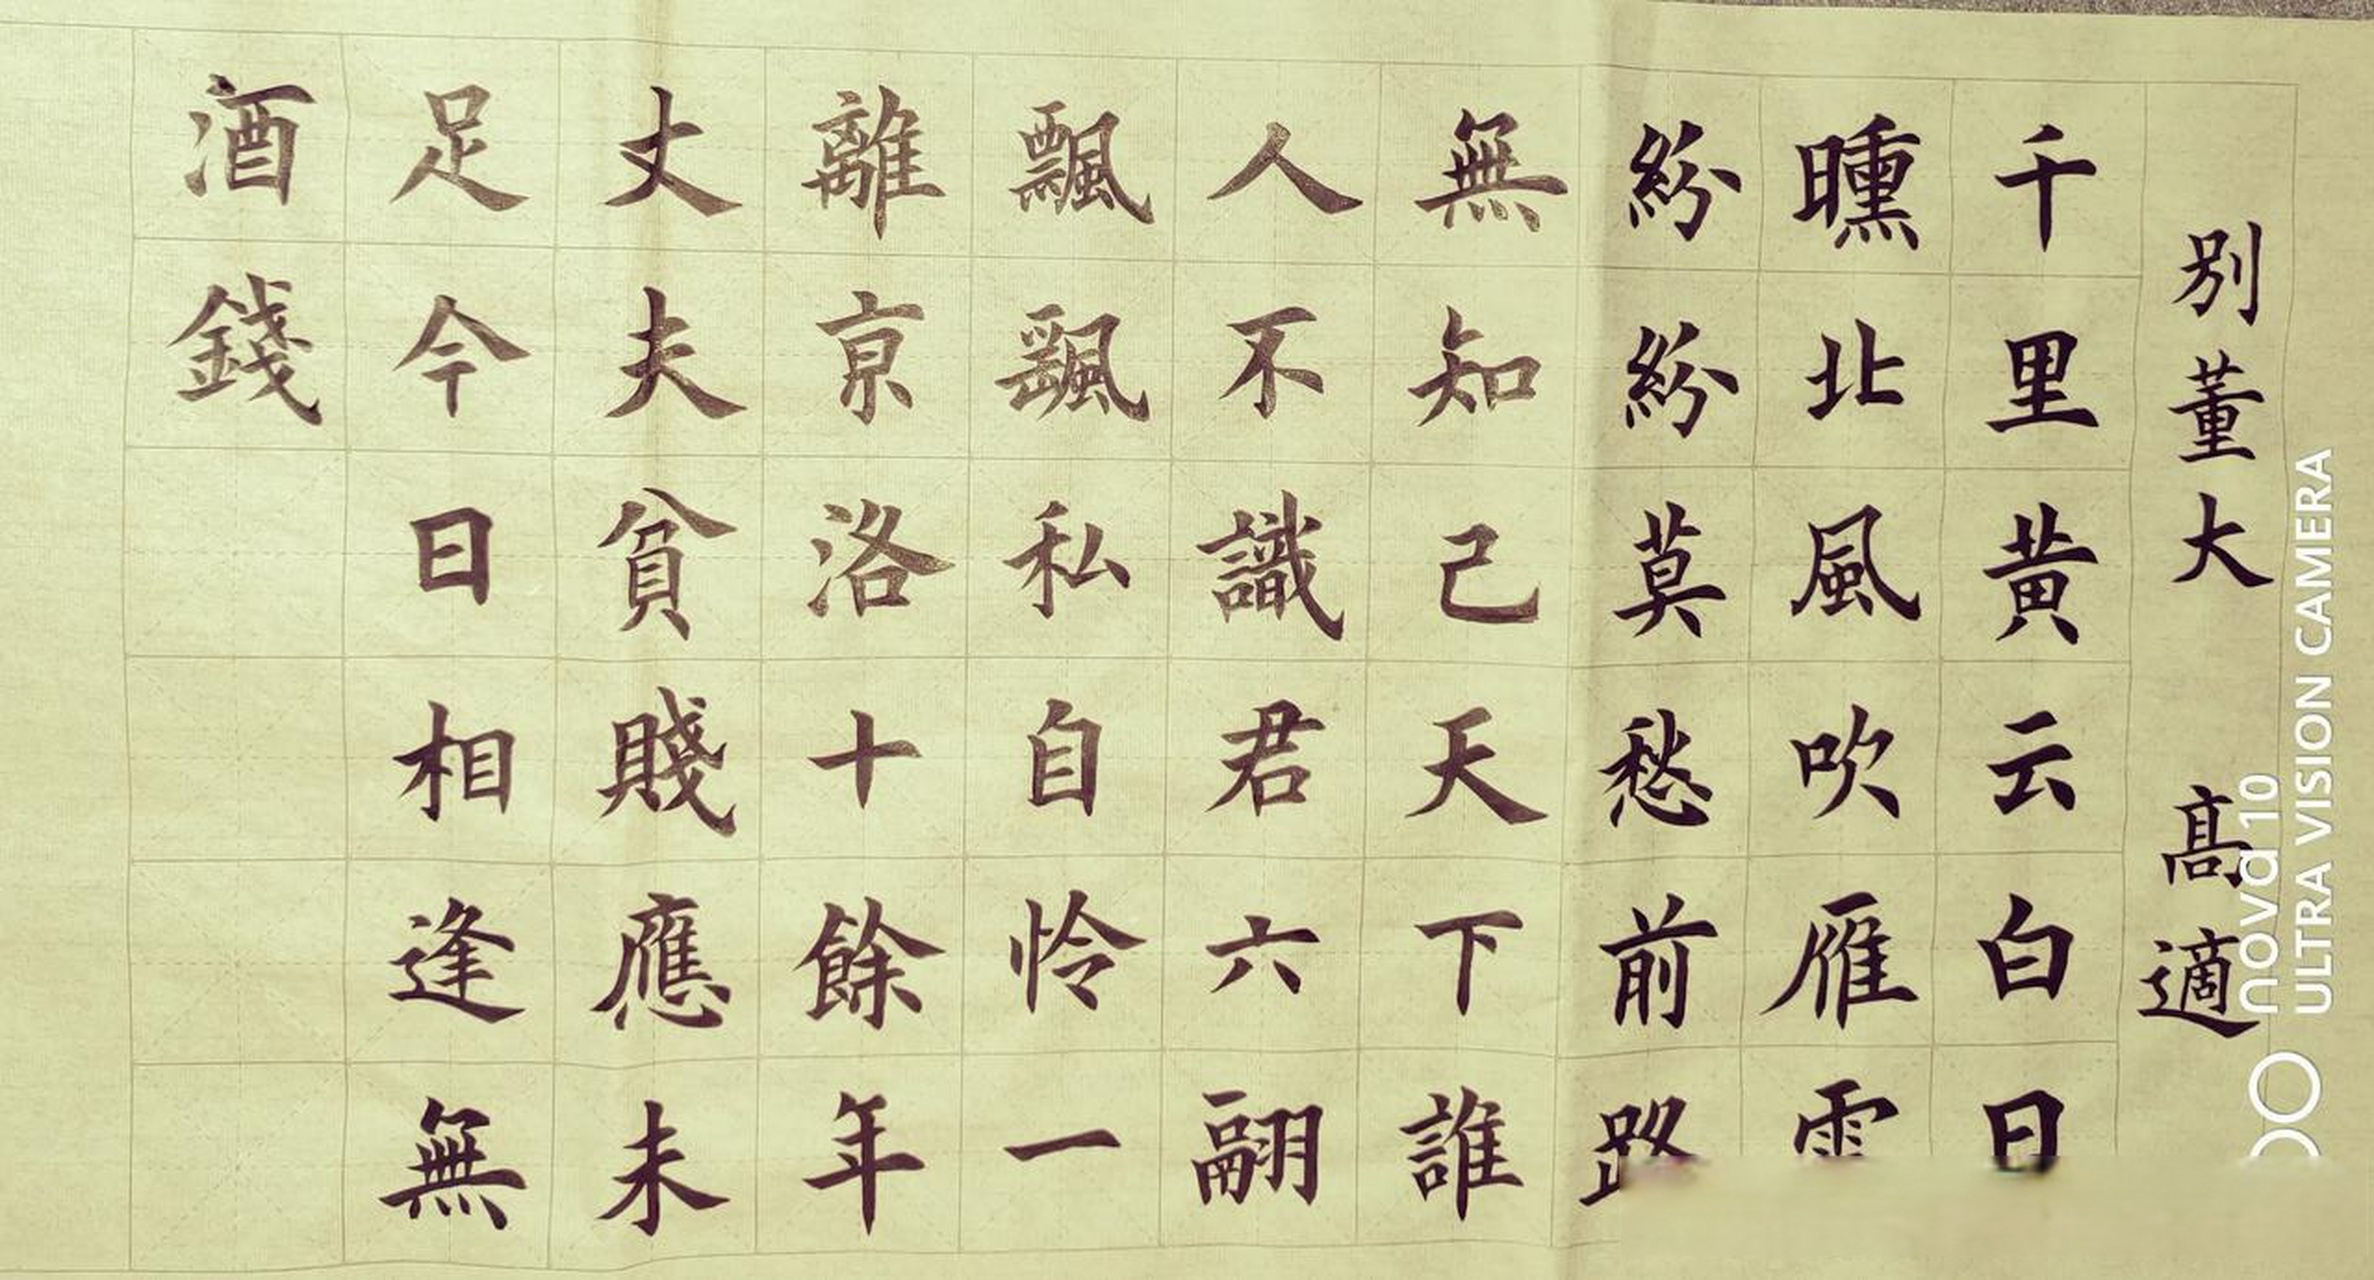 别董大 髙適
千里黄云白日
曛北風吹雁雪
紛紛莫愁前路
無知己天下誰
人不識君六翮
飄飖私自怜一
離亰洛十餘年
丈夫貧賤應未
足今日相逢無
酒錢
nova 10
ULTRA VISION CAMERA